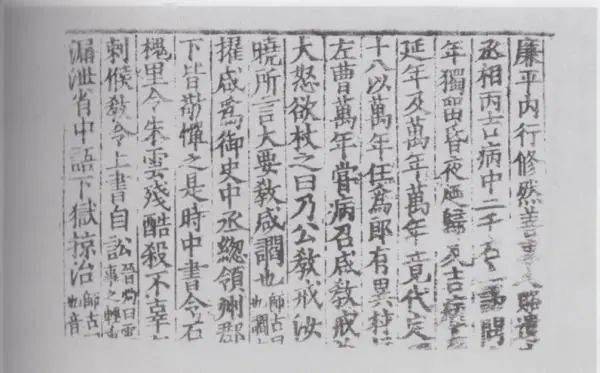 廉平內行修然善事人賂遺
丞相丙吉病中二千石謁問
年獨留昏夜廼歸及吉病
延年及萬年萬年竟代定
十八以萬年任爲郎有異材
左曹萬年嘗病召咸教戒
大怒欲杖之曰乃公教戒汝
曉所言大要教咸讇也師古曰
也讇
擢咸爲御史中丞總領州郡
下皆敬憚之是時中書令石
槐里令朱雲殘酷殺不辜
刺候教令上書自訟晉灼曰雲
事之輕
漏泄省中語下獄掠治師古
也音